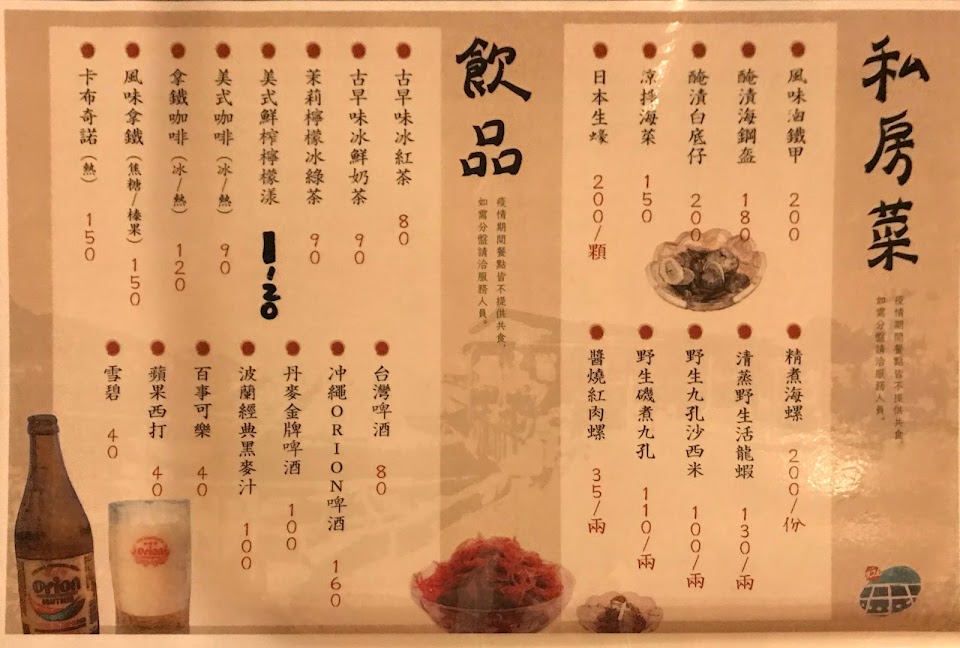 私房菜
疫情期間餐點皆不提供共食，
如需分盤請洽服務人員。
風味滷鐵甲 200
醃漬海鋼盔 180
醃漬白底仔 200
涼拌海菜 150
日本生蠔 200/顆
精煮海螺 200/份
清蒸野生活龍蝦 130/兩
野生九孔沙西米 100/兩
野生磯煮九孔 110/兩
醬燒紅肉螺 35/兩
飲品
疫情期間餐點皆不提供共食，
如需分盤請洽服務人員。
古早味冰紅茶 80
古早味冰鮮奶茶 90
茉莉檸檬冰綠茶 90
美式鮮榨檸檬漾 120
美式咖啡(冰/熱) 90
拿鐵咖啡(冰/熱) 120
風味拿鐵(焦糖/榛果) 150
卡布奇諾(熱) 150
台灣啤酒 80
冲繩ORION啤酒 160
丹麥金牌啤酒 100
波蘭經典黑麥汁 100
百事可樂 40
蘋果西打 40
雪碧 40
Orion
Orion